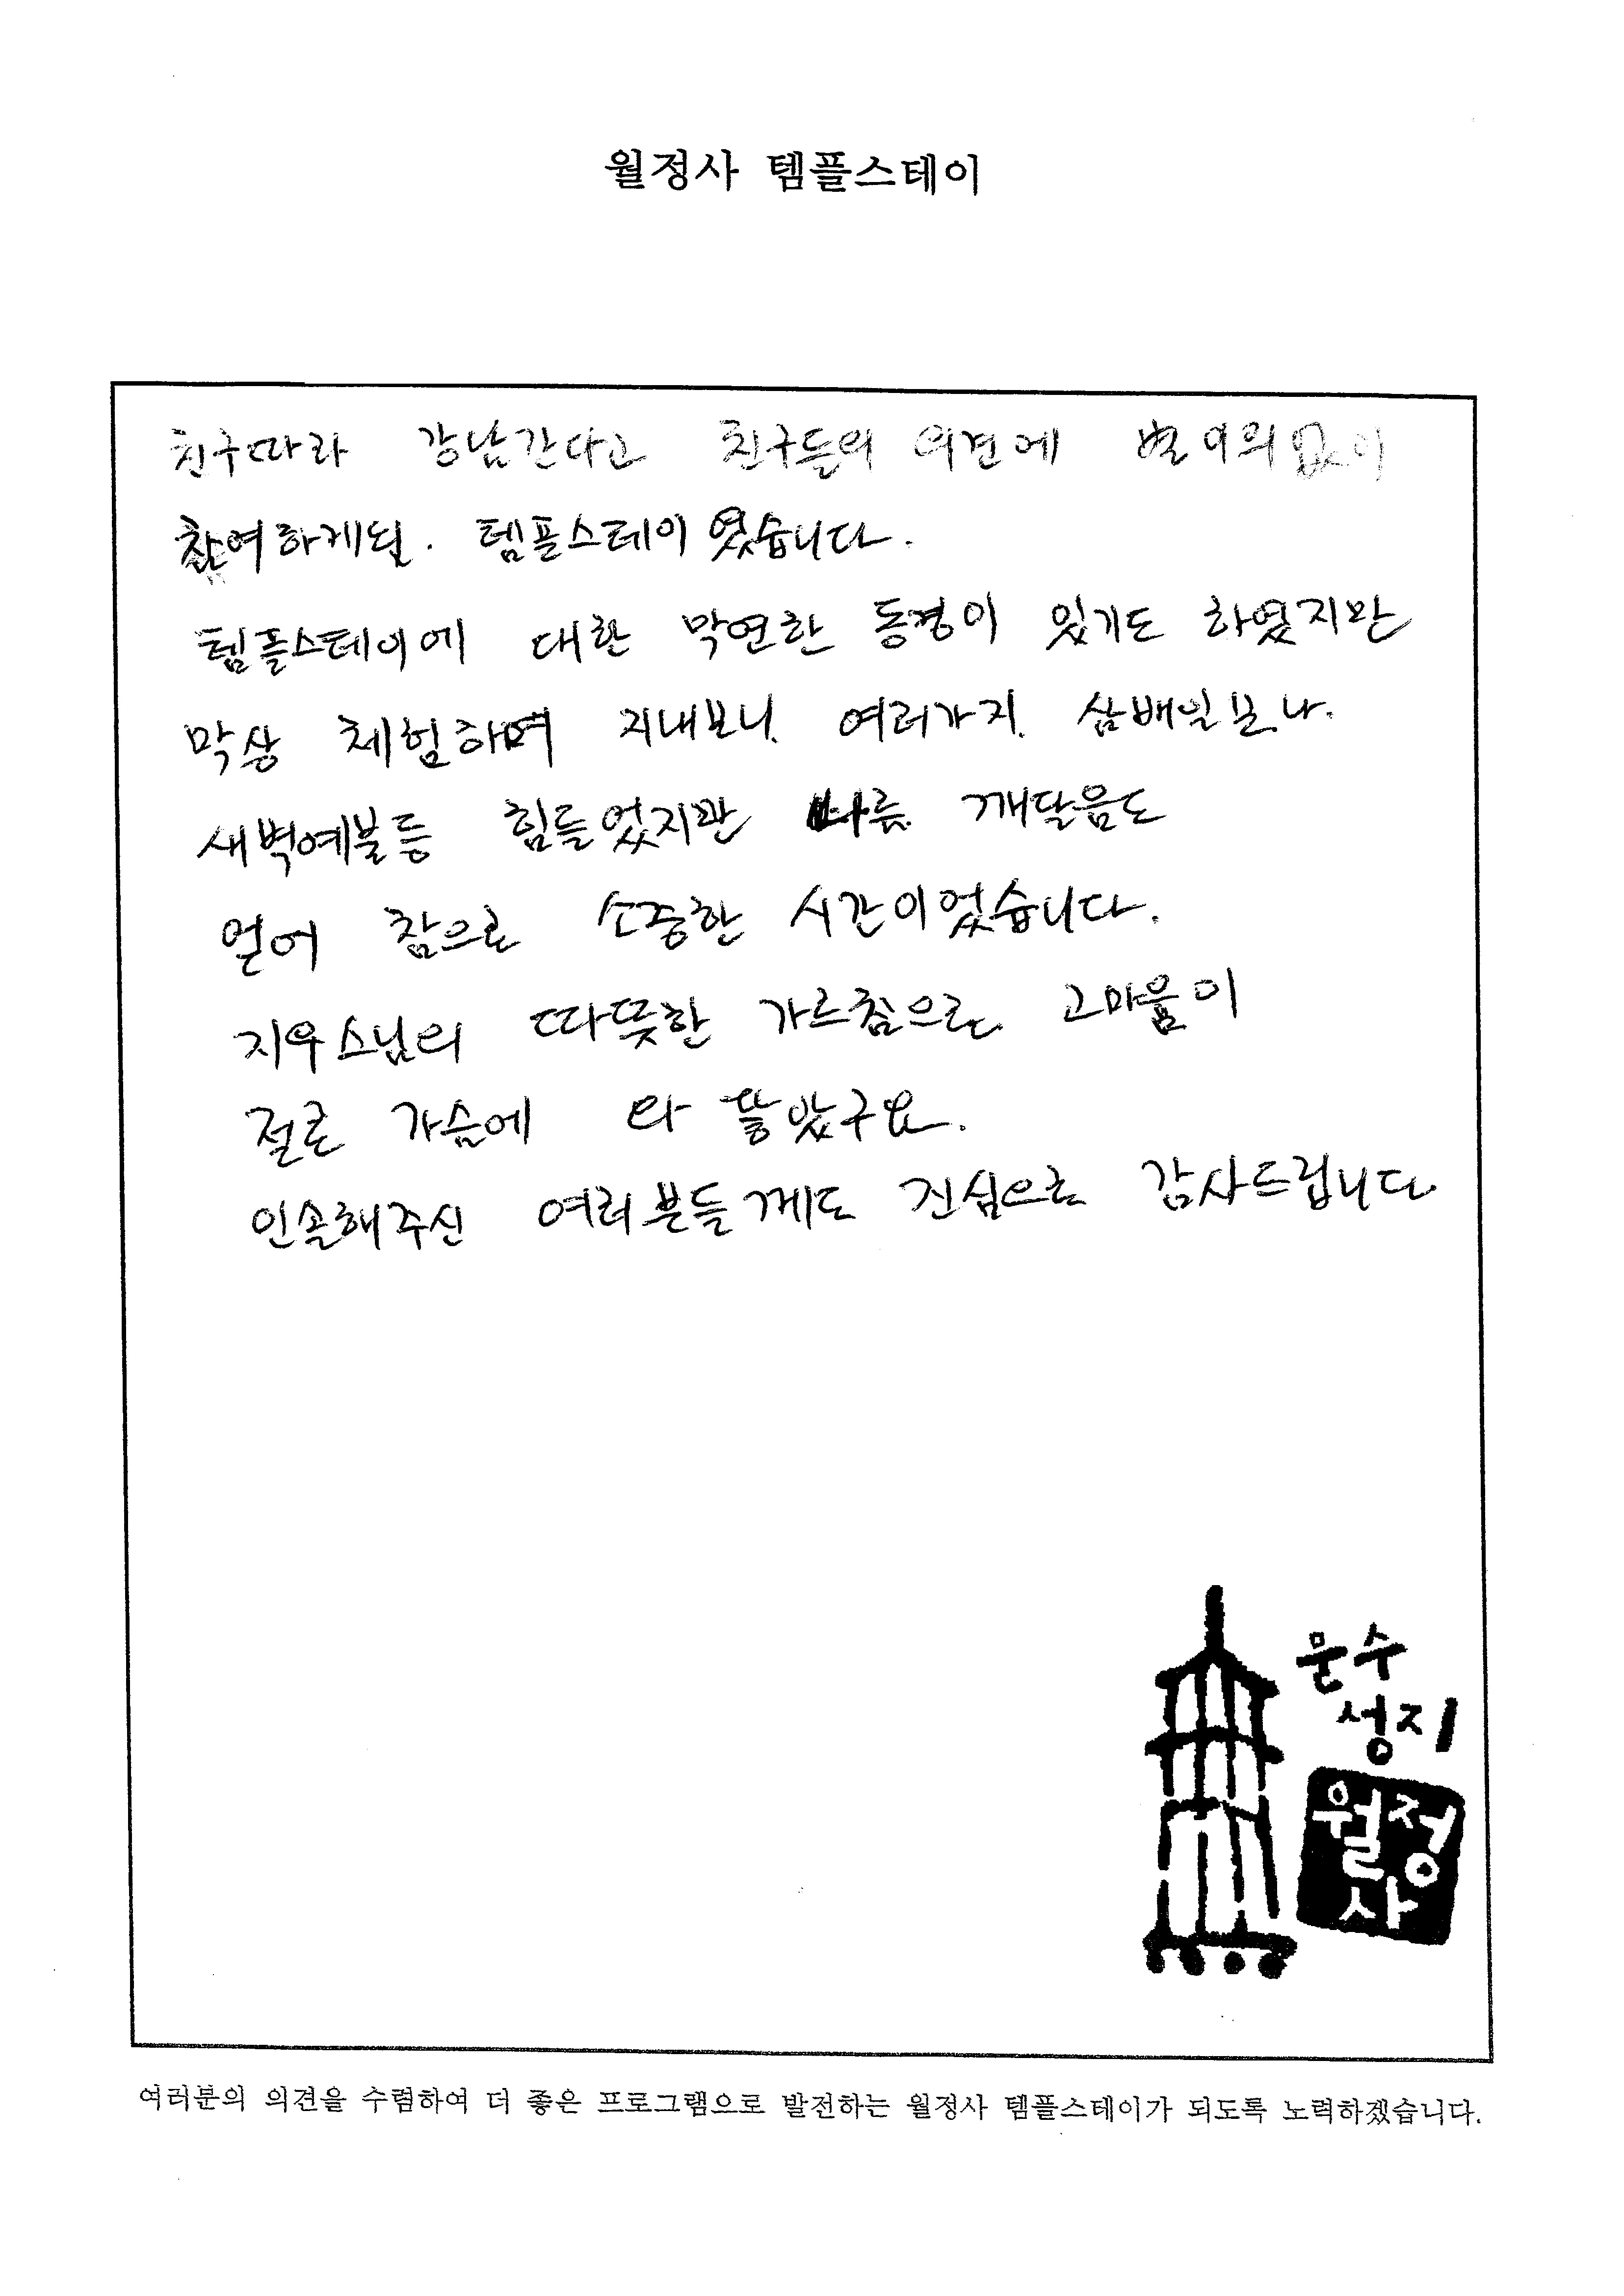 월정사 템플스테이
친구따라 강남간다고 친구들의 의견에 별 이의없이
참여하게된. 템플스테이 였습니다.
템플스테이에 대한 막연한 동경이 있기도 하였지만
막상 체험하며 지내보니 여러가지 삼배일보나.
새벽예불등 힘들었지만 나름 깨달음도
얻어 참으로 소중한 시간이었습니다.
지우스님의 따뜻한 가르침으로 고마움이
절로 가슴에 와 닿았구요.
인솔해주신 여러분들께도 진심으로 감사드립니다
문수
성지
월정
사
여러분의 의견을 수렴하여 더 좋은 프로그램으로 발전하는 월정사 템플스테이가 되도록 노력하겠습니다.